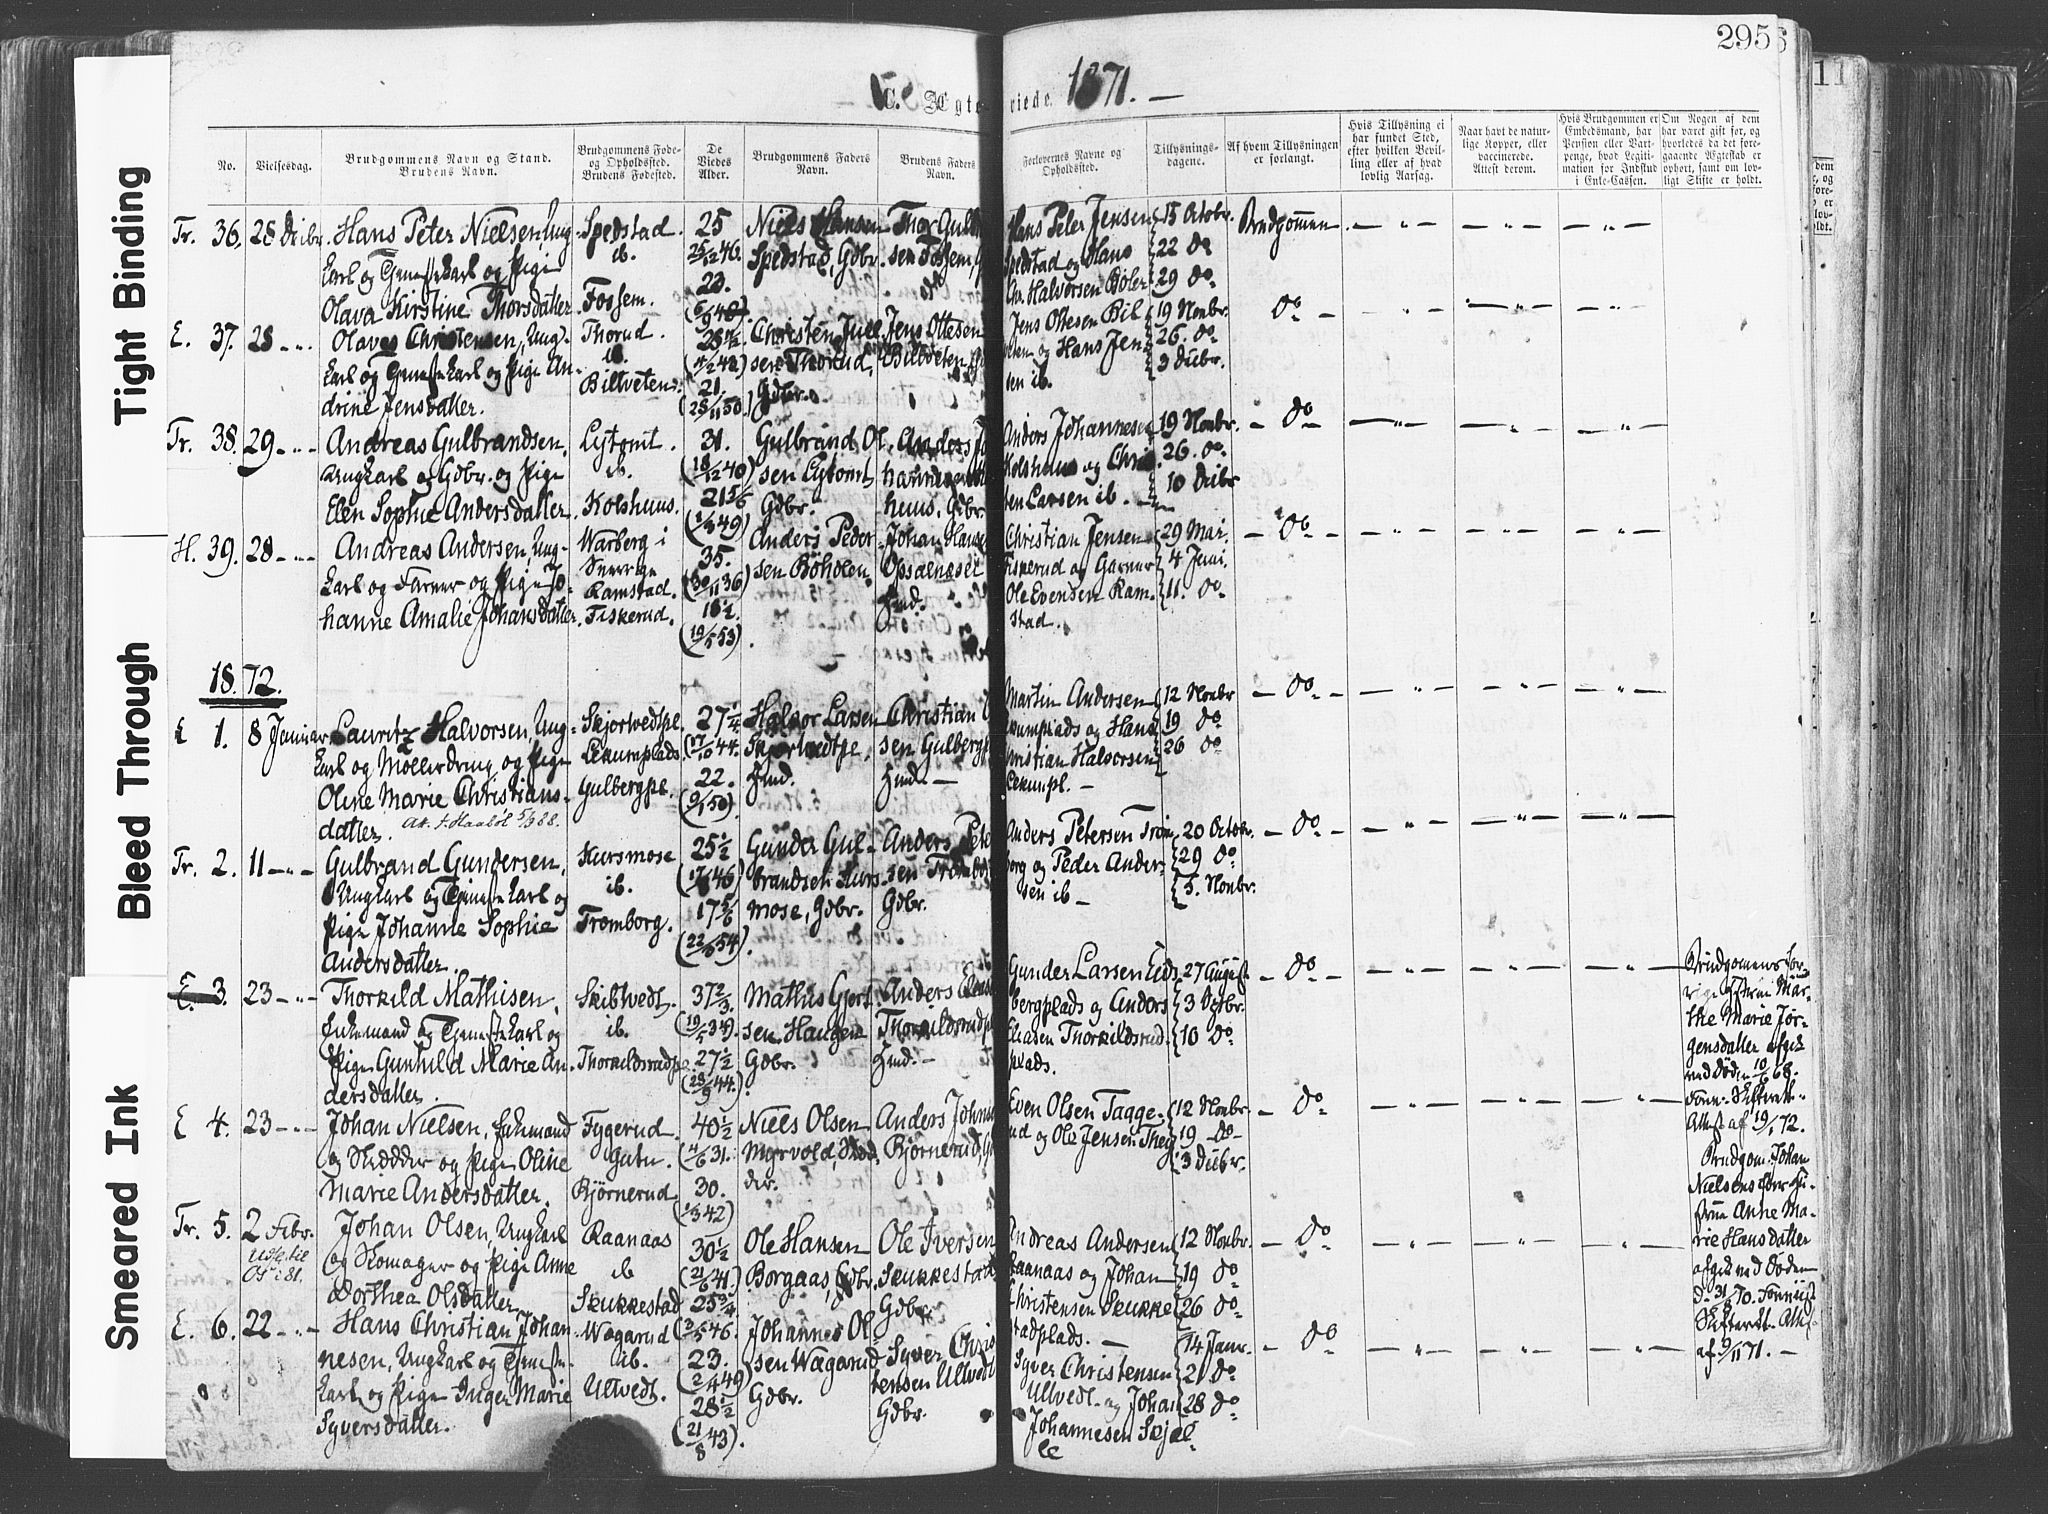 295
C. Ægteviede. 1871. —
Tight Binding
Bleed Through
Smeared Ink
No.
Vielsesdag.
Brudgommens Navn og Stand.
Brudens Navn.
Brudgommens Føde-
og Opholdssted.
Brudens Fødested.
De
Viedes
Alder.
Brudgommens Faders
Navn.
Brudens Faders
Navn.
Forlovernes Navne og
Opholdssted.
Tillysnings-
dagene.
Af hvem Tillysningen
er forlangt.
Hvis Tillysning ei
har fundet Sted,
efter hvilken Bevil-
ling eller af hvad
lovlig Aarsag.
Naar havt de natur-
lige Kopper, eller
vaccinerede.
Attest derom.
Hvis Brudgommen er
Embedsmand, har
Pension eller Vart-
penge, hvad Legiti-
mation for Indskud
i Enke-Cassen.
Om Nogen af dem
har været gift før, og
hvorledes da det fore-
gaaende Ægteskab er
ophørt, samt om lov-
ligt Skifte er holdt.
Tr. 36. 28 Dcibr.
Hans Peter Nielsen, Ung-
karl og Tjenestekarl og Pige
Olava Kirstine Thorsdatter
Spedstad.
ib.
Fossem.
25
25/12 46.
23.
Niels Hansen
Spedstad, Gdbr.
Thor Gulb
sen Fossem, G
Hans Peter Jensen
Spedstad og Hans
Chr. Halvorsen Böler
15 Octobr.
22 do
29 do
Brudgommen
E. 37. 28 - " -
Olaves Christensen, Ung-
karl og Tjenestekarl og Pige An-
drine Jensdatter.
Thorud.
ib.
Billveten.
28 1/2
21.
(28/11 50.)
Christen Juel
sen Thorud,
Gdbr.
Jens Ottesen
Billveten
Jens Ottesen Bil
veten og Hans Jen
sen ib.
19 Novbr.
26. do
3 Dcibr.
do
Tr. 38. 29 - " -
Andreas Gulbrandsen,
Ungkarl og Gdbr. og Pige
Elen Sophie Andersdatter
Lytomt.
ib.
Kolshuus.
31.
(18/12 40)
21 5/6
Gulbrand Ol-
sen Lytomt
Gdbr.
Anders Jo
hannesen
huus, Gdbr.
Anders Johannesen
Kolshuus og Chris
ten Larsen ib. —
19 Novbr.
26. do
10 Dcibr
- do -
H. 39. 28 - " -
Andreas Andersen, Ung-
karl og Farver og Pige Jo-
hanne Amalie Johansdatter
Warberg i
Sverrige
Ramstad.
Fiskerud.
35.
(30/11 36)
18 1/2
(19/5 53)
Anders Peder
sen Böholen
Johan Hanse
Opsalnæset
Huusd.
Christian Jensen
Fiskerud og Garver
Ole Evensen Ram-
stad.
29 Mai.
4 Juni
11. do
- do -
1872.
E 1. 8 Januar
Lauritz Halvorsen, Ung-
karl og Möllerdreng og Pige
Oline Marie Christians-
datter.
Skjortvedtpe
Lekumplads.
Gulbergpe.
27 1/4
17/10 44.
22.
(9/1 50)
Halvor Larsen
Skjortvedtpe,
Huusd.
Christian
sen Gulbergp
Huusd. —
Martin Andersen
Lekumplads og Hans
Christian Halvorsen
Lekumpl. —
12 Novbr
19 do
26 do
- do -
Tr. 2. 11 - " -
Gulbrand Gundersen,
Ungkarl og Tjenestekarl og
Pige Johanne Sophie
Andersdatter.
Kursmose
ib.
Tromborg.
25 1/2
17 5/6
Gunder Gul-
brandsen Kurs-
mose, Gdbr.
Anders Pete
sen Trombo
Gdbr.
Anders Petersen Trom
borg og Peder Ander-
sen ib —
20 Octobr.
29 do
5. Novbr.
- do -
E. 3. 23 - " -
Thorkild Mathisen,
Enkemand og Tjenestekarl og
Pige Gunhild Marie An-
dersdatter.
Skibtvedt.
ib.
Thorkildsrudpe.
37 2/3
27 1/2
(23/9 44.)
Mathis Gjert-
sen Haugen
Gdbr.
Anders Elias
Thorkildsrudpl
Huusd. —
Gunder Larsen Eids
bergplads og Anders
Eliasen Thorkildsrud
plads.
27 August
3 Septbr.
10 do
- do -
Brudgomens for-
rige Hustru Mar-
the Marie Jör-
gensdatter afgik
ved Döden 10/6 68.
Attest af 19/1 72.
E 4. 23 - " -
Johan Nielsen, Enkemand
og Skrædder og Pige Oline
Marie Andersdatter.
Fygerud
Bjørnerud
40 1/2
4/6 31.
30.
(1/3 42)
Niels Olsen
Myrvold, Skræd-
der.
Anders Johan
Bjørnerud, G
Even Olsen Tagge-
rud og Ole Jensen Theg
12 Novbr
19 do
3 Dcibr.
- do -
Brudgom. Johan
Nielsens
Anne Ma-
rie Hansdatter
afgik ved Döden
d. 31/8 70.
af 9/11 71. —
Tr. 5. 2 Febr.
Johan Olsen, Ungkarl
og Skomager og Pige Anne
Dorthea Olsdatter
Raanaas
ib
Skukkestad
30 1/2
(21/6 41)
25 3/4
Ole Hansen
Borgaas, Gdbr.
Ole Iversen
Skukkestad
Gdbr.
Andreas Andersen
Raanaas og Johan
Christensen Skukke
stadplads. —
12 Novbr.
19 do
26 do
- do -
E. 6. 22 - " -
Hans Christian Johan-
nesen, Ungkarl og Tjeneste-
karl og Pige Inger Marie
Syversdatter.
Wægarud
ib.
Ultvedt.
23.
(2/4 49)
28 1/2
(21/8 43).
Johannes Ol-
sen Wægarud
Gdbr.
Syver Chris
tensen Ullvedt
Gdbr.
Syver Christensen
Ullvedt og Johan
Johannesen Skjel
le
14 Janr.
21 do
28 do
- do